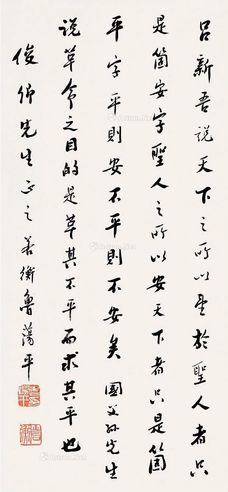 呂新吾說天下之所以望於聖人者只
是箇安字聖人之所以安天下者只是箇
平字平則安不平則不安矣 國父孙先生
説革命之目的是革其不平而求其平也
俊仰先生正之 若衡魯蕩平